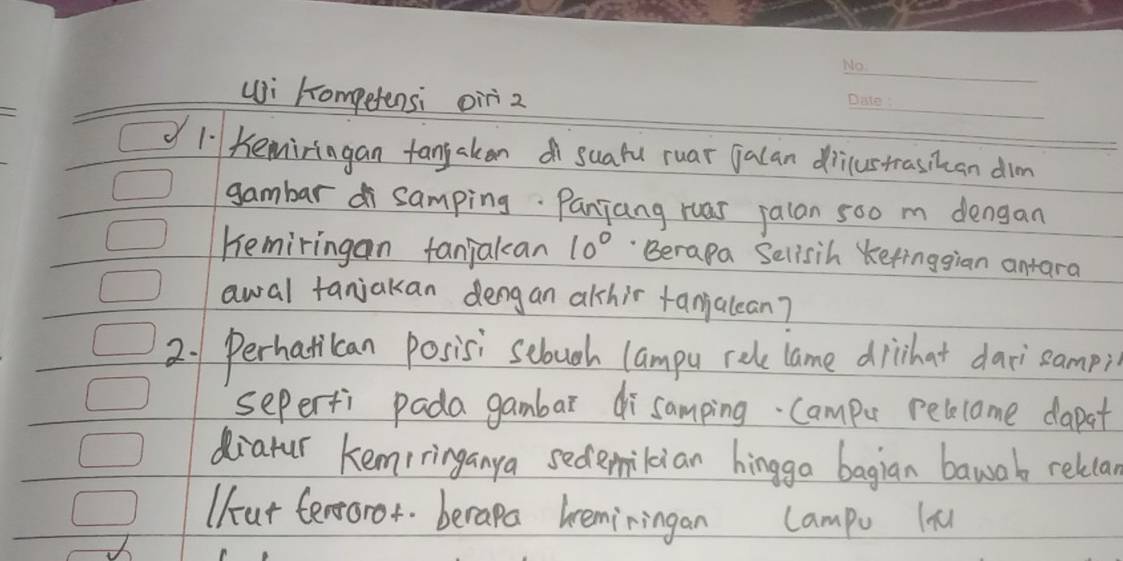 No.
Date :
Uji Kompetensi Diri 2
1. Kemiringan tanjakan di suatu ruar jalan diilustrasikan dlm
gambar di samping. Panjang ruas jalan 500 m dengan
kemiringan tanjakan 10°. Berapa selisih ketinggian antara
awal tanjakan dengan akhir tanjakan?
2. Perhatikan posisi sebuah lampu reklame dilihat dari sampi
seperti pada gambar di samping. Lampu reklame dapat
diatur kemiringanya sedemikian hingga bagian bawah reklam
Ikut tersorot. berapa kemiringan lampu